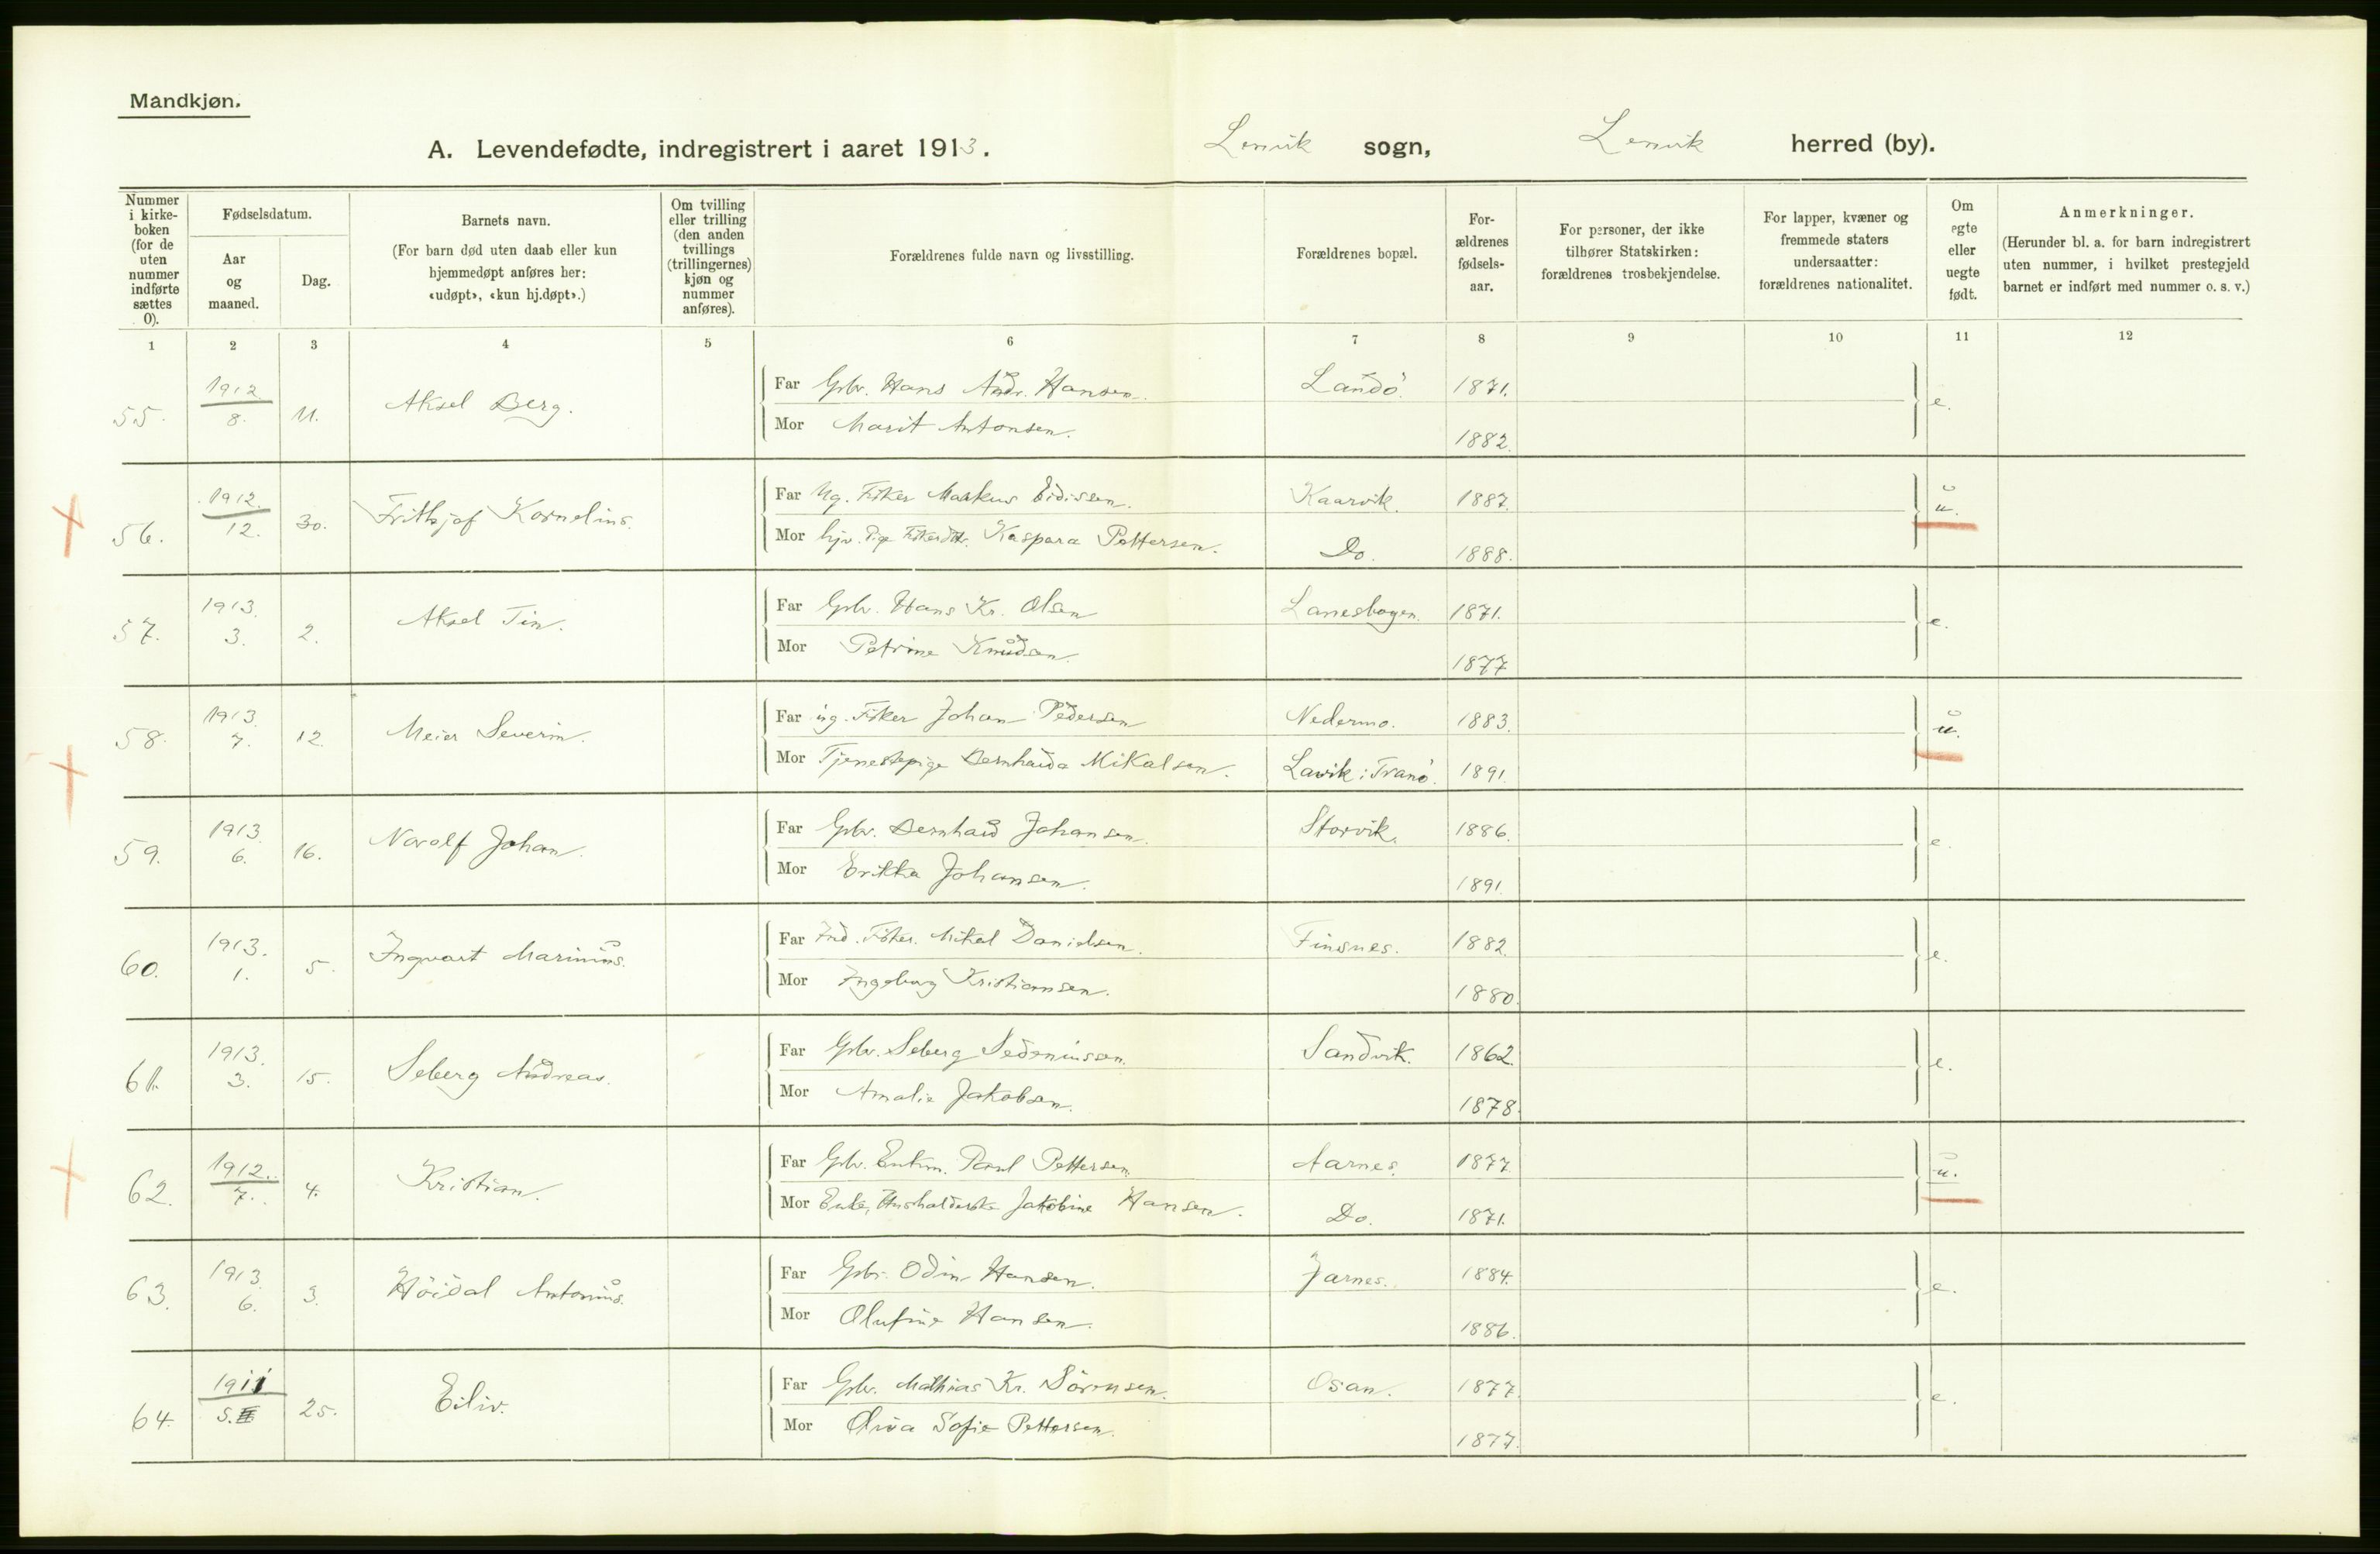 Mandkjøn.
A. Levendefødte, indregistrert i aaret 1913. Lenvik sogn, Lenvik herred (by).
Nummer i kirkeboken (for de uten nummer indførte sættes 0).
Fødselsdatum.
Aar og maaned.
Dag.
Barnets navn.
(For barn død uten daab eller kun hjemmedøpt anføres her: «udøpt», «kun hj.døpt».)
Om tvilling eller trilling (den anden tvillings (trillingernes) kjøn og nummer anføres).
Forældrenes fulde navn og livsstilling.
Forældrenes bopæl.
For-ældrenes fødsels-aar.
For personer, der ikke tilhører Statskirken: forældrenes trosbekjendelse.
For lapper, kvæner og fremmede staters undersaatter: forældrenes nationalitet.
Om egte eller uegte født.
Anmerkninger.
(Herunder bl. a. for barn indregistrert uten nummer, i hvilket prestegjeld barnet er indført med nummer o. s. v.)
1 2 3 4 5 6 7 8 9 10 11 12
55. 1912 8. 11. Aksel Berg. Far Gbr. Hans Andr. Hansen. Landö. 1871. e.
Mor Marit Antonsen. 1882.
56. 1912. 12. 30. Frithjof Kornelius. Far Ug. Fisker Markus Eidissen. Kaarvik. 1887. u.
Mor hjv. Pige Fiskerdtr. Kaspara Pettersen. Do. 1888.
57. 1913. 3. 2. Aksel Tin. Far Gbr. Hans Kr. Olsen Lanesbogen. 1871. e.
Mor Petrine Knudsen. 1877
58. 1913. 7. 12. Meier Severin. Far ug. Fisker Johan Pedersen Nedermo. 1883. u.
Mor Tjenestepige Bernharda Mikalsen. Lavik i Tranö. 1891.
59. 1913. 6. 16. Norolf Johan. Far Gbr. Bernhard Johansen. Storvik. 1886. e.
Mor Erikka Johansen. 1891.
60. 1913. 1. 5. Ingvart Marinius. Far Ind. Fisker. Mikal Danielsen. Finsnes. 1882. e.
Mor Ingeborg Kristiansen. 1880.
61. 1913. 3. 15. Seberg Andreas. Far Gbr. Seberg Sedeniussen. Sandvik. 1862. e.
Mor Amalie Jakobsen. 1878.
62. 1912. 7. 4. Kristian. Far Gbr. Enkm. Paul Pettersen. Aarnes. 1877. u.
Mor Enke, Husholderske Jakobine Hansen. Do. 1871.
63. 1913. 6. 3. Höidal Antonius. Far Gbr. Odin Hansen. Jarnes. 1884. e.
Mor Olufine Hansen. 1886.
64. 1911 5. 25. Eiliv. Far Gbr. Mathias Kr. Sörensen. Osan. 1877. e.
Mor Oliva Sofie Pettersen. 1877.